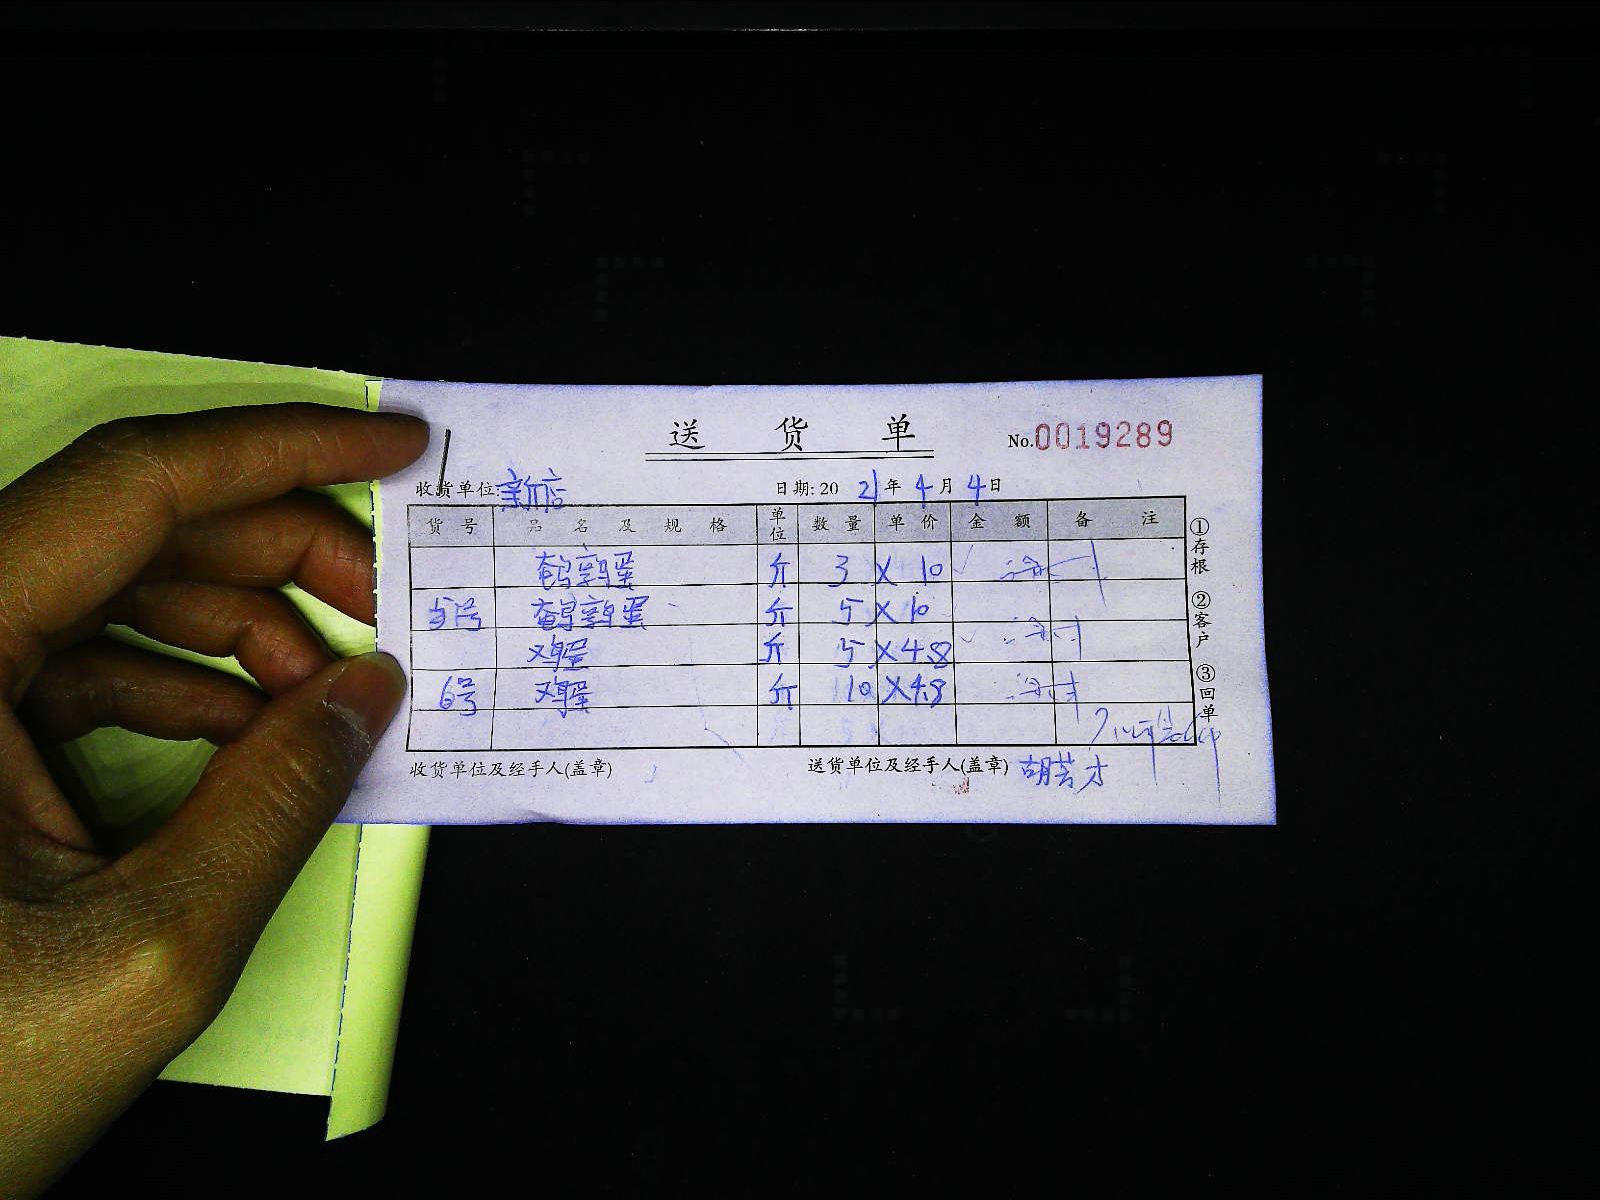 送 货 单
No.0019289
收货单位:新店 日期: 2021年4月4日
货号 品名及规格 单位 数量 单价 金额 备注
鹌鹑蛋 斤 3 X 10
5号 鹌鹑蛋 斤 5 X 10
鸡蛋 斤 5 X 4.8
6号 鸡蛋 斤 10 X 4.8
①存根
②客户
③回单
收货单位及经手人(盖章) 送货单位及经手人(盖章) 胡芸才